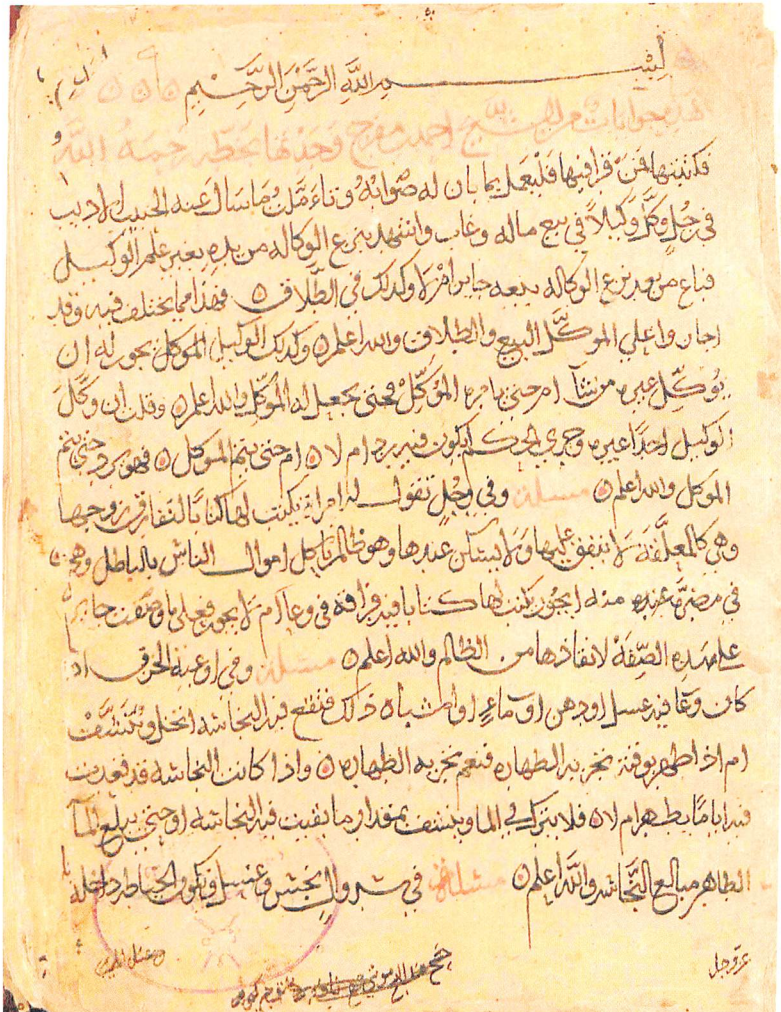 بسم الله الرحمن الرحيم
هذه جوابات من الشيخ احمد بن مفرج وجدتها بخطه رحمه الله
فكتبتها فمن قرا فيها فليعمل بما بان له صوابه وتاءملت ما سال عنه الحبيب الاديب
في رجل وكل وكيلاً في بيع ماله وغاب واشهد بنزع الوكاله من يده بغير علم الوكيل
فباع من بعد نزع الوكاله بيعه جايز ام لا وكذلك في الطلاق ه فهذا مما يختلف فيه وقد
اجازوا على الموكل البيع والطلاق والله اعلم ه وكذلك الوكيل الموكل يجوز له ان
يوكل غيره من شآ ام حتى يامره الموكل فحتى يجعل له الموكل والله اعلم ه وقلت ان وكل
الوكيل احدًا غيره وجرى الحكم ايكون فيه يرد ام لا ه ام حتى يتم الموكل ه فهو يرد حتى يتم
الموكل والله اعلم ه مسلة وفي رجل تقول له امراة يكتب لها كتابًا لتفارق زوجها
وهي كالمعلقة لا ينفق عليها ولا يسكن عندها وهو ظالم ياكل اموال الناس بالباطل وهي
في مضرة عنده مده ايجوز يكتب لها كتابا فيه فراقه في وعا ام لا يجوز فعلى ما وصفت جايز
على هذه الصفة لانقاذها من الظالم والله اعلم ه مسلة وفي اوعية الخزف اذا
كان وعآ فيه عسل او دهن او مآء او اشباه ذلك فتقع فيه النجاسه ايغسل وينشف
ام اذا طهر بوقته تجزيه الطهاره فنعم تجزيه الطهاره ه واذا كانت النجاسه قد قعدت
فيه اياما يطهر ام لا ه فلا يترك في الما وينشف بمقدار ما بقيت فيه النجاسه او حتى يبلغ المآ
الطاهر مبالغ النجاسه والله اعلم ه مسلة في سروال نجس وغسل وتكون الخياطه داخله
عز وجل